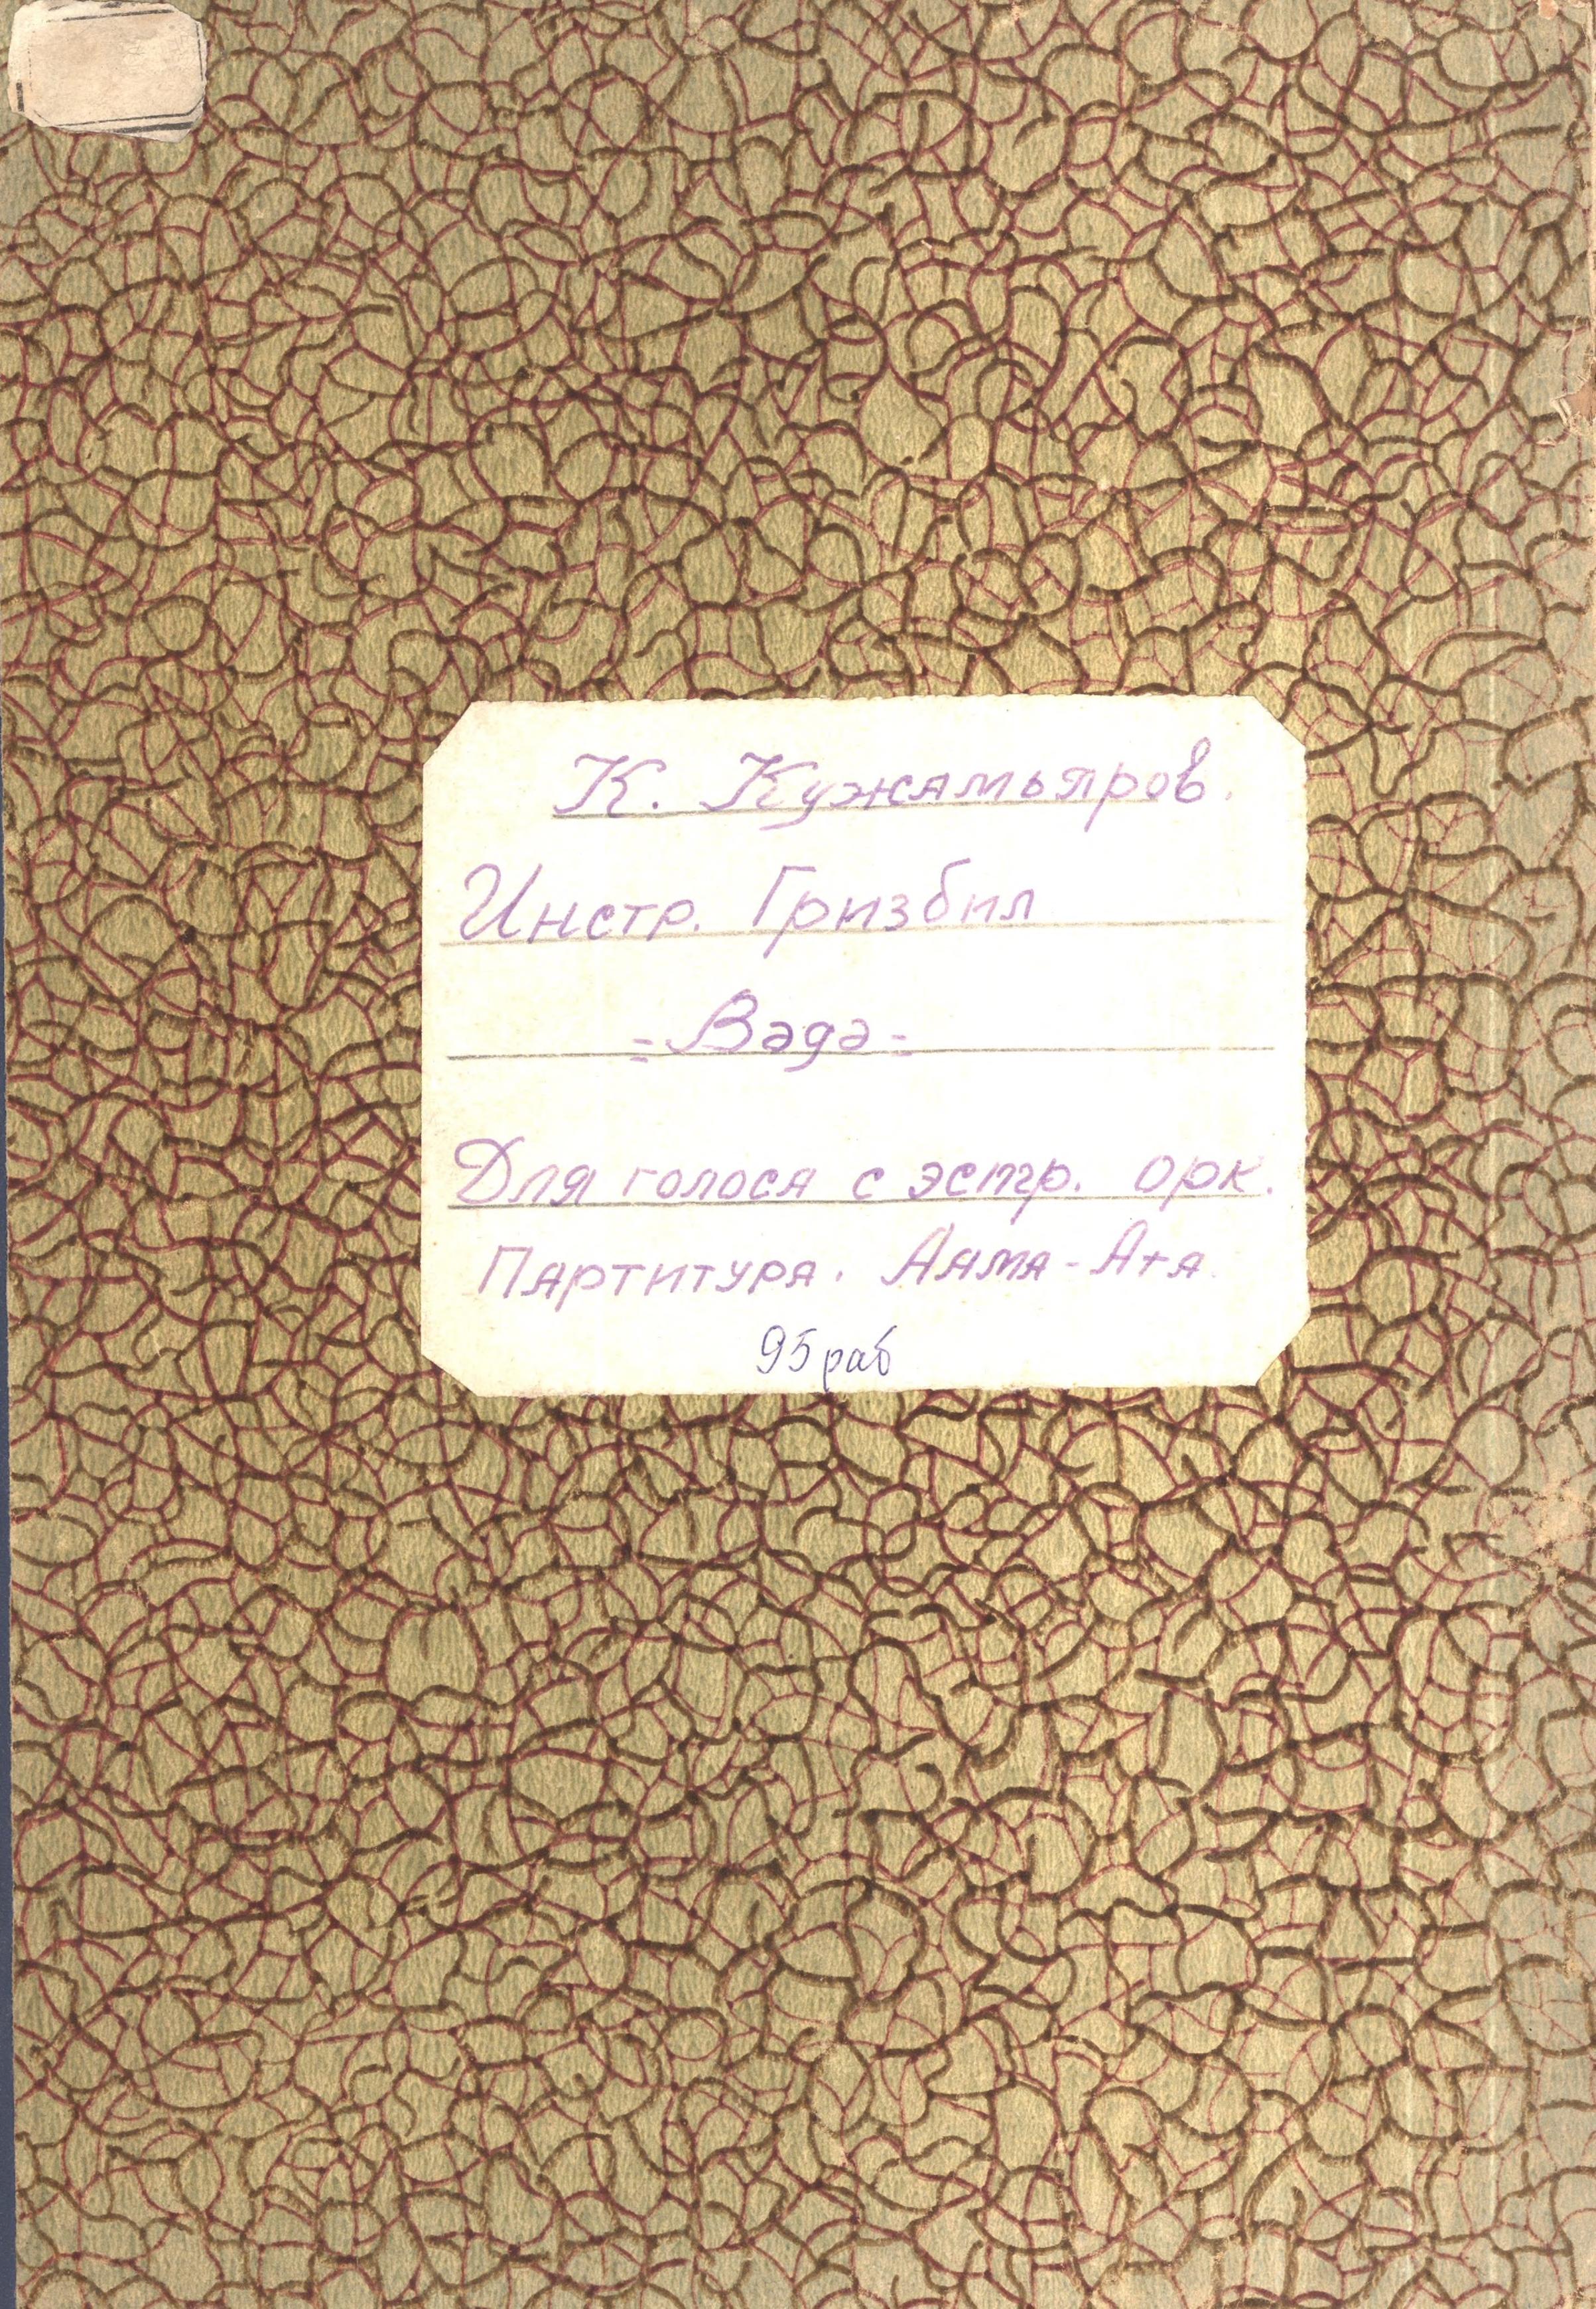 К. Кужамьяров.
Инстр. Гризбил
= Вәдә =
Для голоса с эстр. орк.
Партитура. Алма-Ата.
95 раб